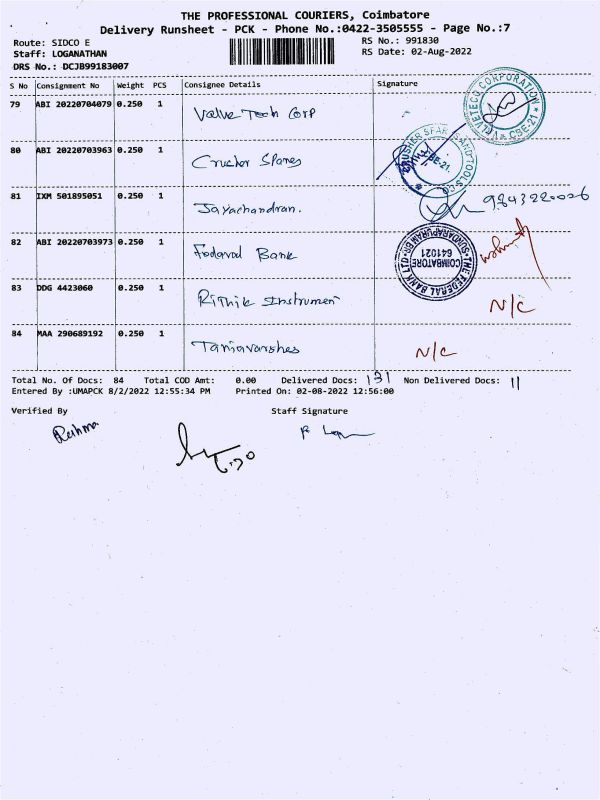 THE PROFESSIONAL COURIERS, Coimbatore
Delivery Runsheet - PCK - Phone No.:0422-3505555 - Page No.:7
Route: SIDCO E
Staff: LOGANATHAN
DRS No.: DCJB99183007
RS No.: 991830
RS Date: 02-Aug-2022
S No Consignment No Weight PCS Consignee Details Signature
79 ABI 20220704079 0.250 1 Valve Tech Corp
VALVETECO CORPORATION * CBE-21 *
80 ABI 20220703963 0.250 1 Crucher Spares
CBE-21.
81 IXM 501895051 0.250 1 Jayachandran.
82 ABI 20220703973 0.250 1 Fedaral Bank
THE FEDERAL BANK LTD. SUNDARAPURAM BR.
COIMBATORE
641021
83 DDG 4423060 0.250 1 Rithik Instrumen N/C
84 MAA 290689192 0.250 1 N/C
Total No. Of Docs: 84 Total COD Amt: 0.00 Delivered Docs: Non Delivered Docs: 11
Entered By :UMAPCK 8/2/2022 12:55:34 PM Printed On: 02-08-2022 12:56:00
Verified By Staff Signature